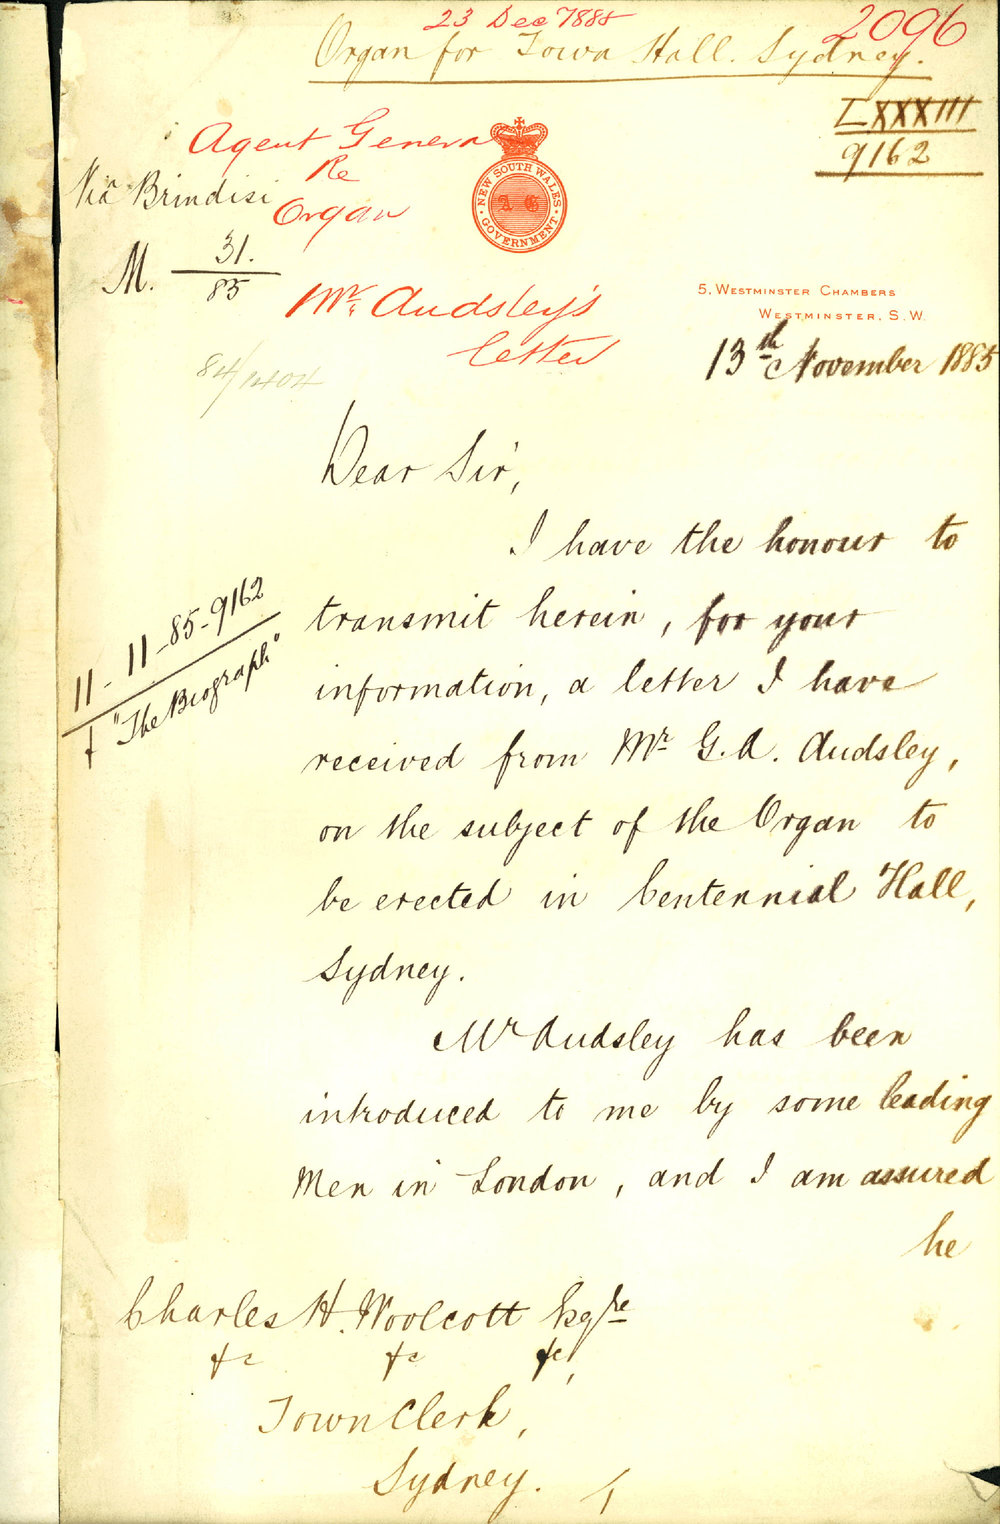 23 Dec 1885
2096
Organ for Town Hall. Sydney.
LXXXIII
9162
Agent General
Re
Organ
Via Brindisi
NEW SOUTH WALES
A G
GOVERNMENT
M. 31.
85
Mr. Audsley's
letter
5, WESTMINSTER CHAMBERS
WESTMINSTER, S.W.
13th November 1885
84/1404
Dear Sir,
I have the honour to
transmit herein, for your
information, a letter I have
received from Mr G. A. Audsley,
on the subject of the Organ to
be erected in Centennial Hall,
Sydney.
11-11-85-9162
+ "The Biograph"
Mr Audsley has been
introduced to me by some leading
Men in London, and I am assured
he
Charles H. Woolcott Esqre
&c &c &c,
Town Clerk,
Sydney.